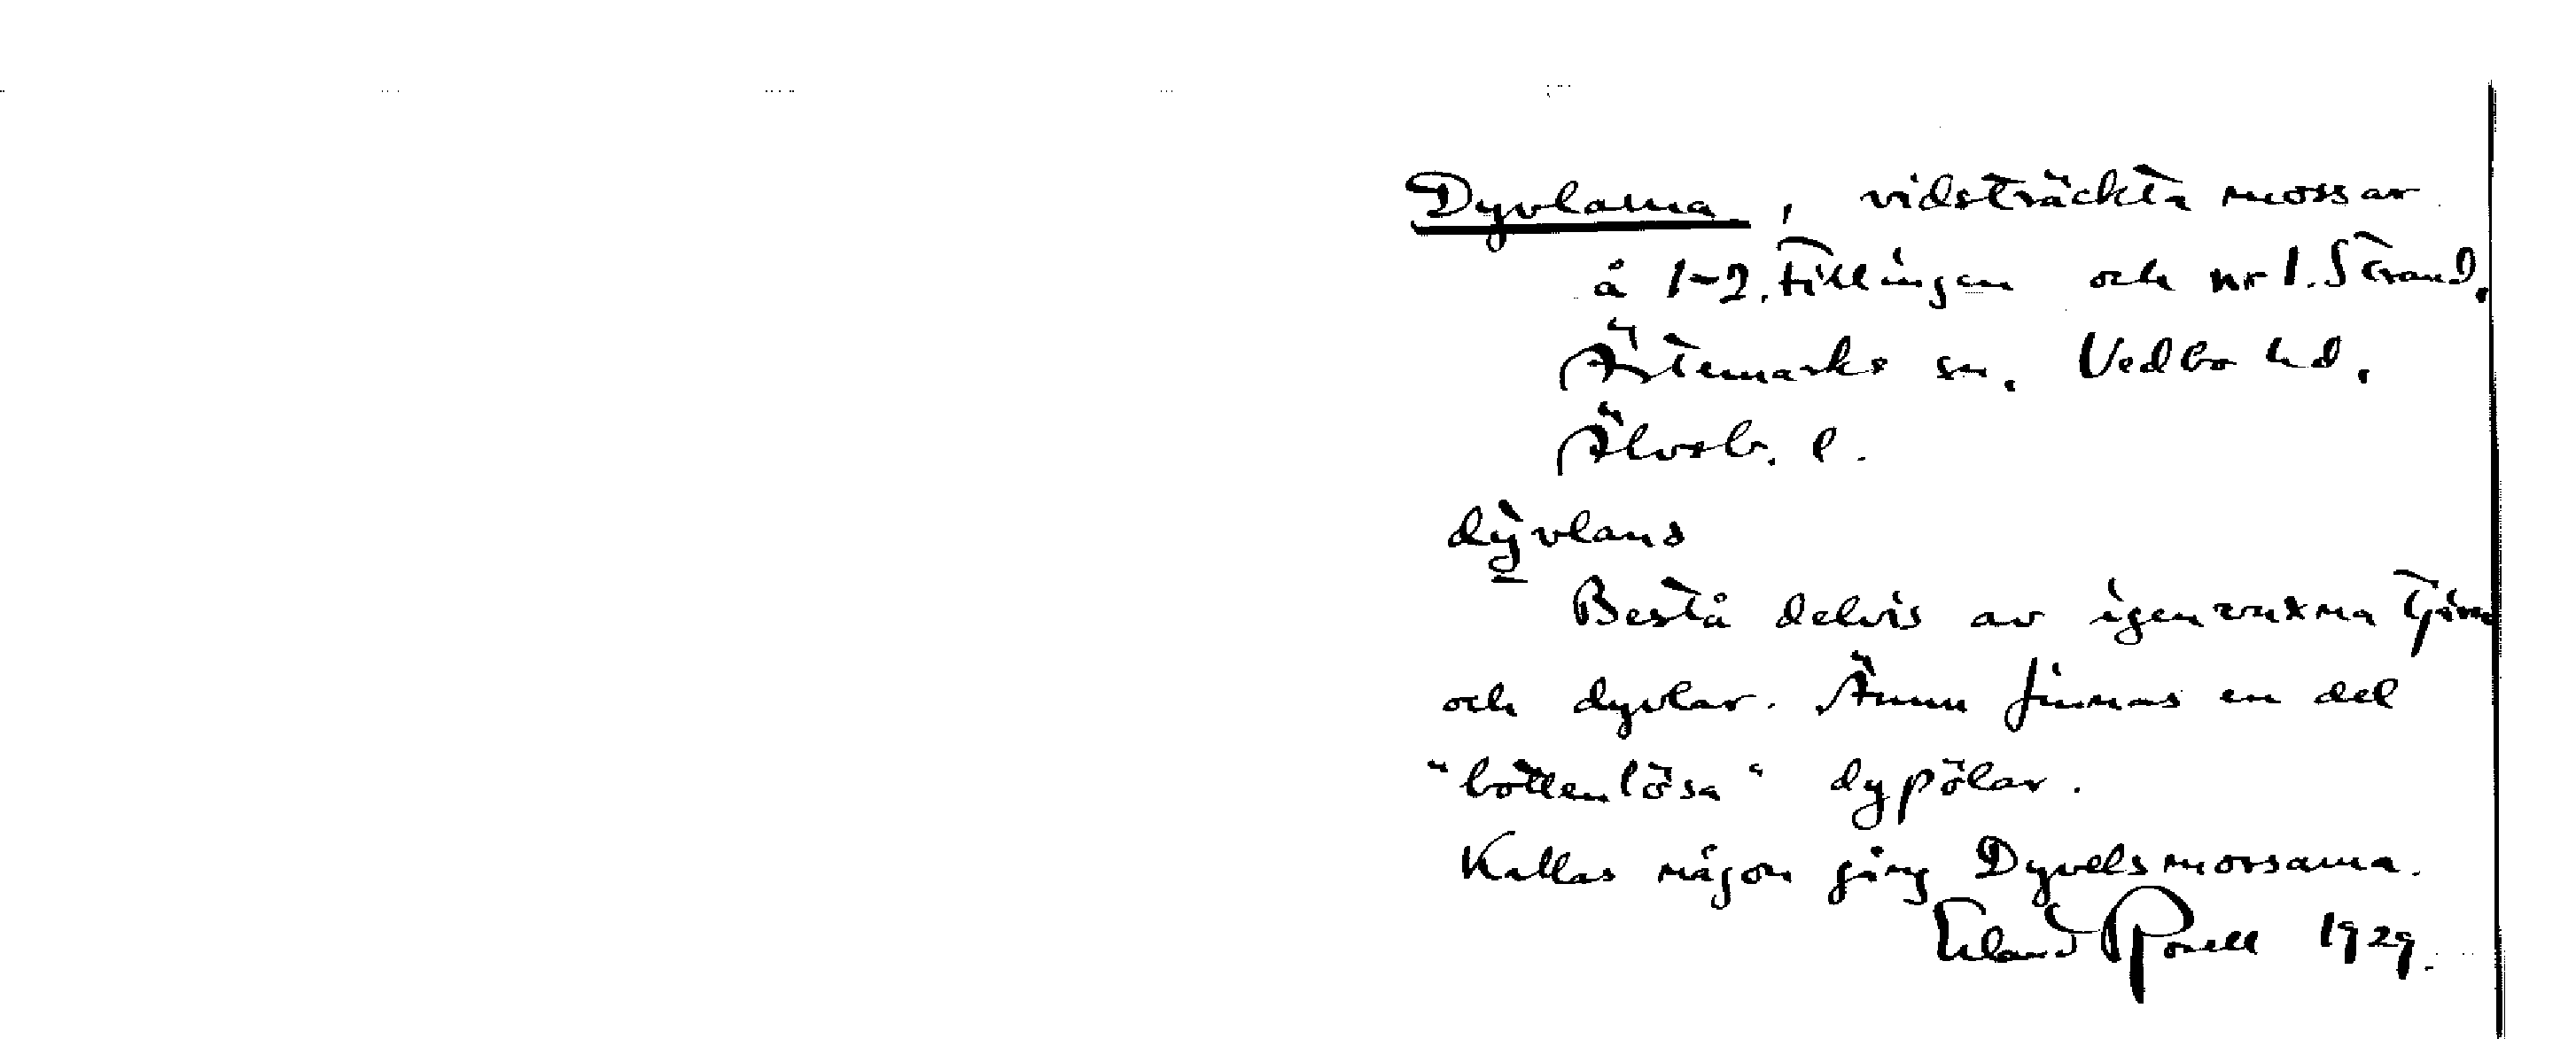 Dyvlarna, vidsträckta mossar
å 1-2. Tillingen och nr 1. Strand.
Ärtemarks sn. Vedbo hd.
Älvsb. l.
dỳvlans
Bestå delvis av igenvuxna tjärn
och dyvlar. Ännu finnas en del
"bottenlösa" dypölar.
Kallas någon gång Dyvelsmossarna.
Erland Rosell 1929.